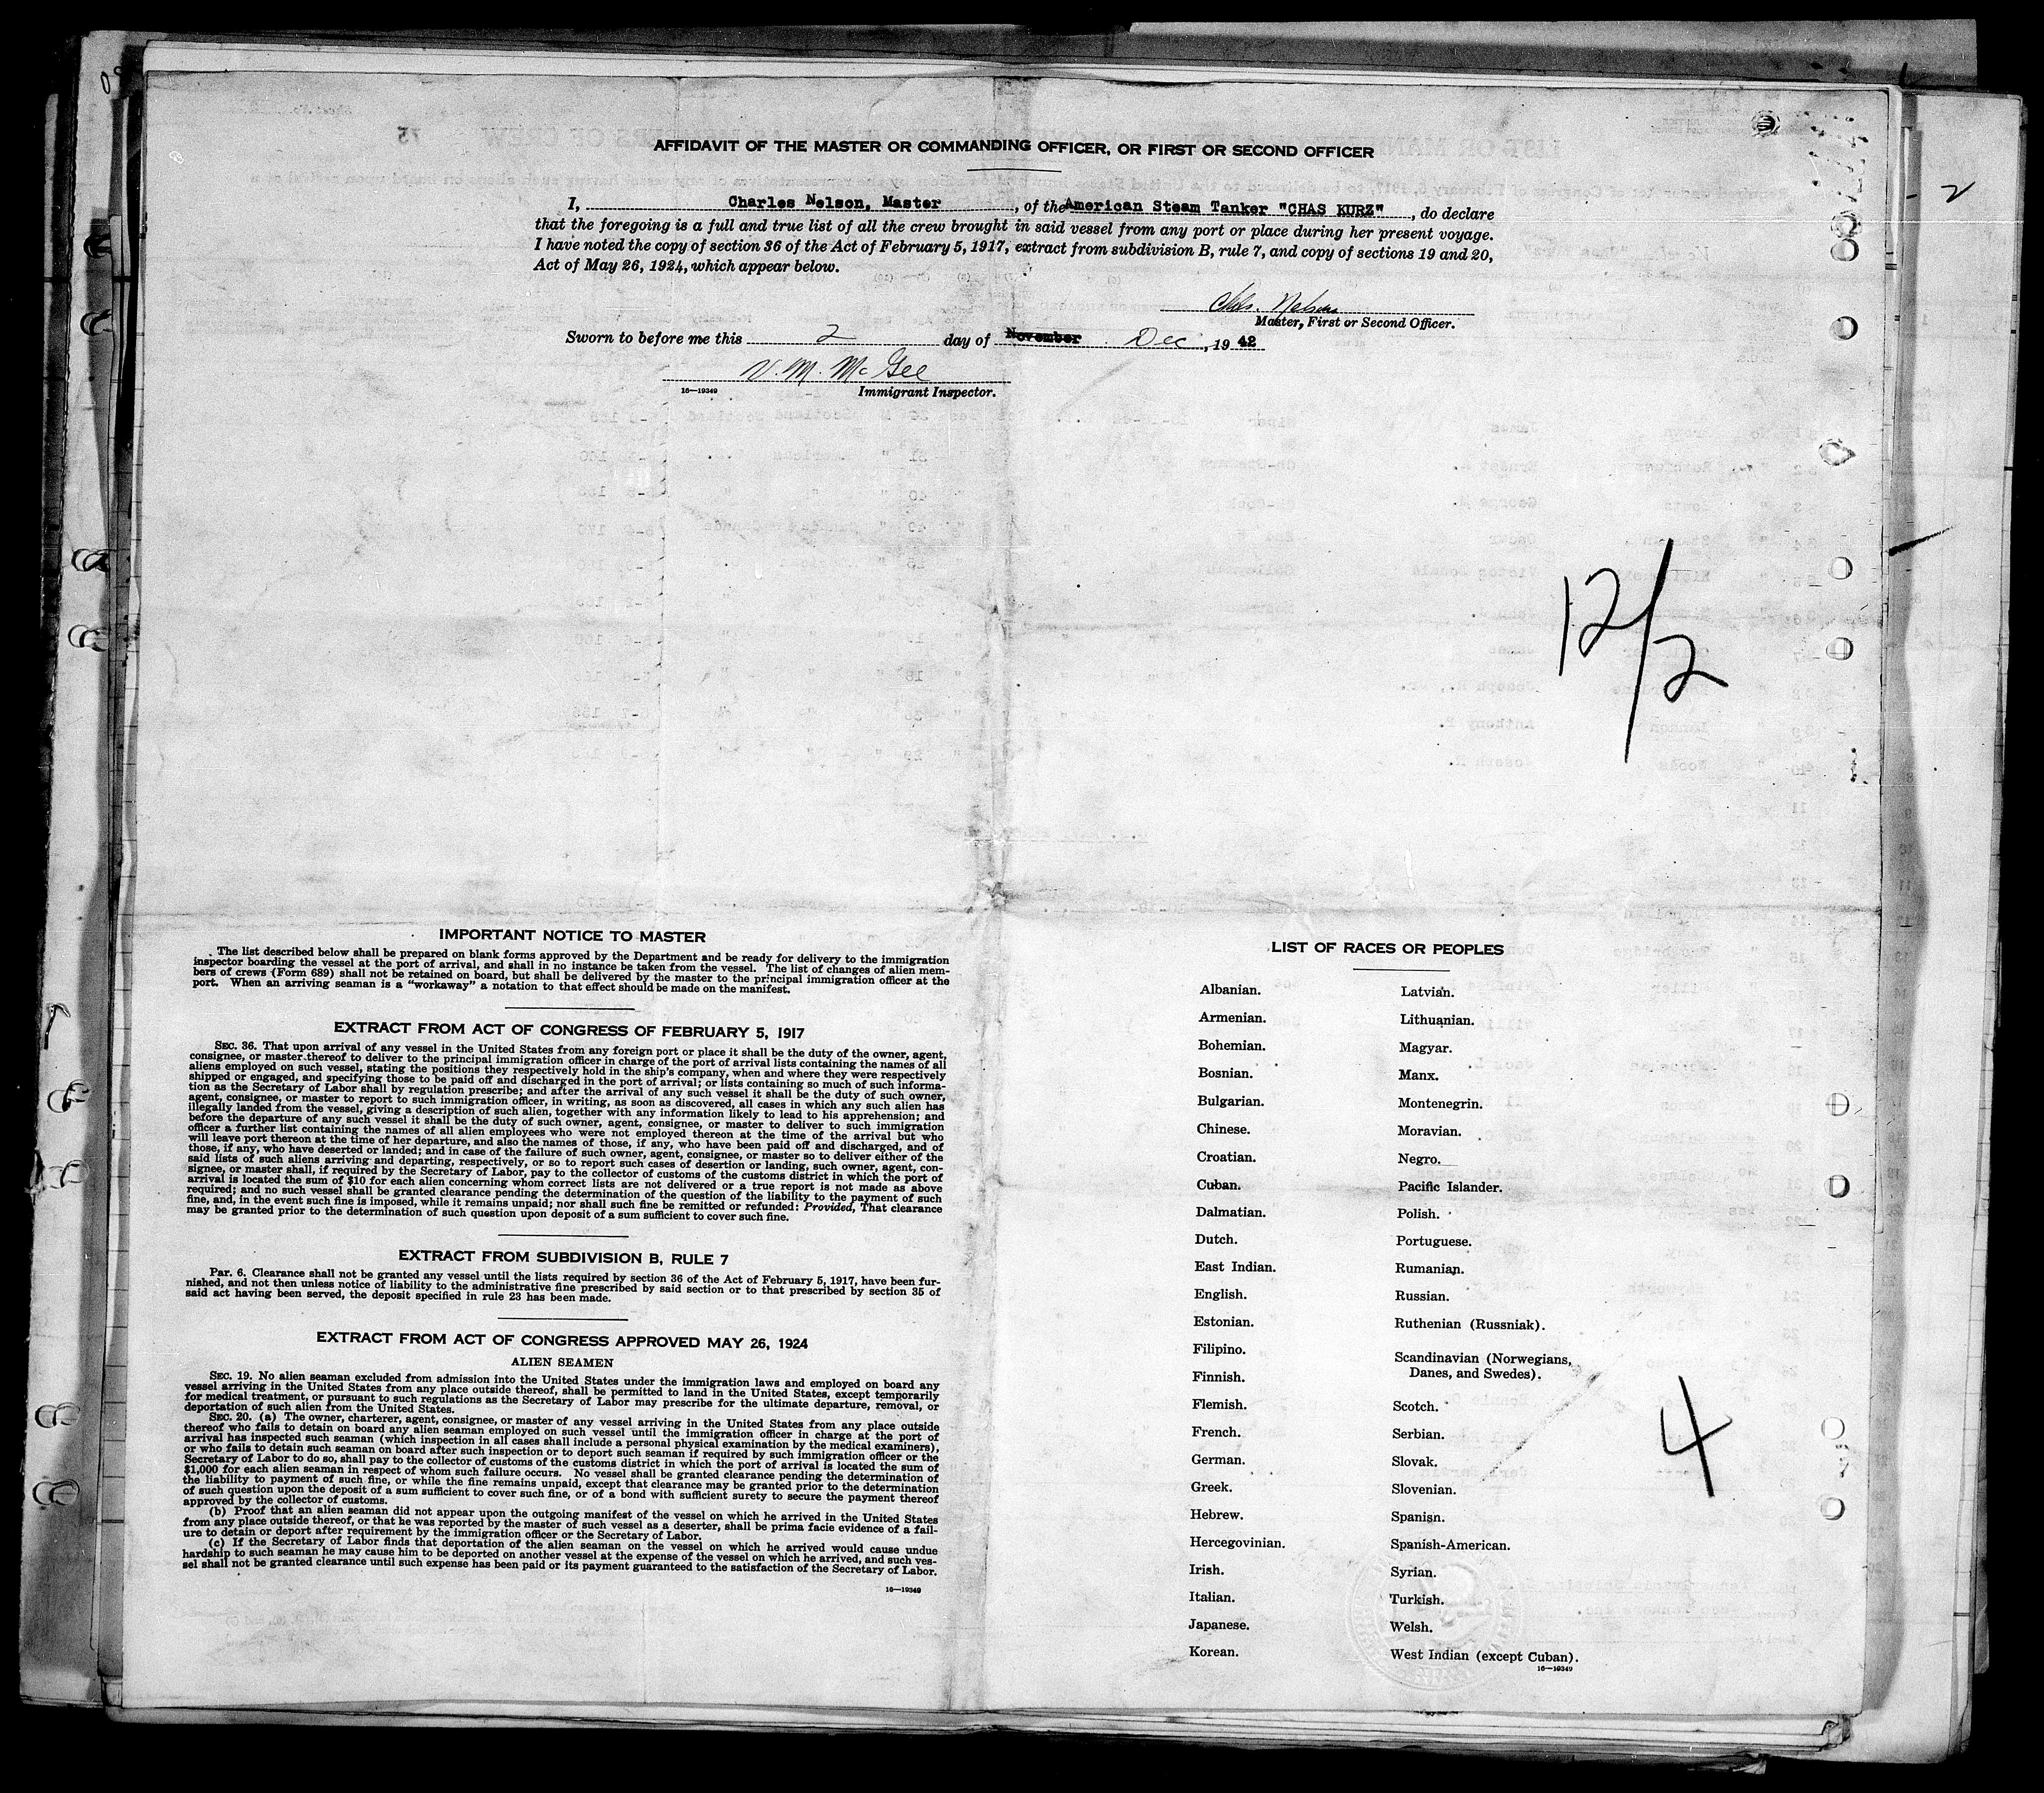 AFFIDAVIT OF THE MASTER OR COMMANDING OFFICER, OR FIRST OR SECOND OFFICER
I, Charles Nelson, Master, of the American Steam Tanker "CHAS KURZ", do declare
that the foregoing is a full and true list of all the crew brought in said vessel from any port or place during her present voyage.
I have noted the copy of section 36 of the Act of February 5, 1917, extract from subdivision B, rule 7, and copy of sections 19 and 20,
Act of May 26, 1924, which appear below.
Chas. Nelson
Master, First or Second Officer.
Sworn to before me this 2 day of November Dec, 19 42
V. M. McGee
16—19349 Immigrant Inspector.
2
12/2
IMPORTANT NOTICE TO MASTER
The list described below shall be prepared on blank forms approved by the Department and be ready for delivery to the immigration
inspector boarding the vessel at the port of arrival, and shall in no instance be taken from the vessel. The list of changes of alien mem-
bers of crews (Form 689) shall not be retained on board, but shall be delivered by the master to the principal immigration officer at the
port. When an arriving seaman is a "workaway" a notation to that effect should be made on the manifest.
EXTRACT FROM ACT OF CONGRESS OF FEBRUARY 5, 1917
SEC. 36. That upon arrival of any vessel in the United States from any foreign port or place it shall be the duty of the owner, agent,
consignee, or master thereof to deliver to the principal immigration officer in charge of the port of arrival lists containing the names of all
aliens employed on such vessel, stating the positions they respectively hold in the ship's company, when and where they were respectively
shipped or engaged, and specifying those to be paid off and discharged in the port of arrival; or lists containing so much of such informa-
tion as the Secretary of Labor shall by regulation prescribe; and after the arrival of any such vessel it shall be the duty of such owner,
agent, consignee, or master to report to such immigration officer, in writing, as soon as discovered, all cases in which any such alien has
illegally landed from the vessel, giving a description of such alien, together with any information likely to lead to his apprehension; and
before the departure of any such vessel it shall be the duty of such owner, agent, consignee, or master to deliver to such immigration
officer a further list containing the names of all alien employees who were not employed thereon at the time of the arrival but who
will leave port thereon at the time of her departure, and also the names of those, if any, who have been paid off and discharged, and of
those, if any, who have deserted or landed; and in case of the failure of such owner, agent, consignee, or master so to deliver either of the
said lists of such aliens arriving and departing, respectively, or so to report such cases of desertion or landing, such owner, agent, con-
signee, or master shall, if required by the Secretary of Labor, pay to the collector of customs of the customs district in which the port of
arrival is located the sum of $10 for each alien concerning whom correct lists are not delivered or a true report is not made as above
required; and no such vessel shall be granted clearance pending the determination of the question of the liability to the payment of such
fine, and, in the event such fine is imposed, while it remains unpaid; nor shall such fine be remitted or refunded: Provided, That clearance
may be granted prior to the determination of such question upon deposit of a sum sufficient to cover such fine.
EXTRACT FROM SUBDIVISION B, RULE 7
Par. 6. Clearance shall not be granted any vessel until the lists required by section 36 of the Act of February 5, 1917, have been fur-
nished, and not then unless notice of liability to the administrative fine prescribed by said section or to that prescribed by section 35 of
said act having been served, the deposit specified in rule 23 has been made.
EXTRACT FROM ACT OF CONGRESS APPROVED MAY 26, 1924
ALIEN SEAMEN
SEC. 19. No alien seaman excluded from admission into the United States under the immigration laws and employed on board any
vessel arriving in the United States from any place outside thereof, shall be permitted to land in the United States, except temporarily
for medical treatment, or pursuant to such regulations as the Secretary of Labor may prescribe for the ultimate departure, removal, or
deportation of such alien from the United States.
SEC. 20. (a) The owner, charterer, agent, consignee, or master of any vessel arriving in the United States from any place outside
thereof who fails to detain on board any alien seaman employed on such vessel until the immigration officer in charge at the port of
arrival has inspected such seaman (which inspection in all cases shall include a personal physical examination by the medical examiners),
or who fails to detain such seaman on board after such inspection or to deport such seaman if required by such immigration officer or the
Secretary of Labor to do so, shall pay to the collector of customs of the customs district in which the port of arrival is located the sum of
$1,000 for each alien seaman in respect of whom such failure occurs. No vessel shall be granted clearance pending the determination of
the liability to payment of such fine, or while the fine remains unpaid, except that clearance may be granted prior to the determination
of such question upon the deposit of a sum sufficient to cover such fine, or of a bond with sufficient surety to secure the payment thereof
approved by the collector of customs.
(b) Proof that an alien seaman did not appear upon the outgoing manifest of the vessel on which he arrived in the United States
from any place outside thereof, or that he was reported by the master of such vessel as a deserter, shall be prima facie evidence of a fail-
ure to detain or deport after requirement by the immigration officer or the Secretary of Labor.
(c) If the Secretary of Labor finds that deportation of the alien seaman on the vessel on which he arrived would cause undue
hardship to such seaman he may cause him to be deported on another vessel at the expense of the vessel on which he arrived, and such ves-
sel shall not be granted clearance until such expense has been paid or its payment guaranteed to the satisfaction of the Secretary of Labor.
16—19349
LIST OF RACES OR PEOPLES
Albanian.
Armenian.
Bohemian.
Bosnian.
Bulgarian.
Chinese.
Croatian.
Cuban.
Dalmatian.
Dutch.
East Indian.
English.
Estonian.
Filipino.
Finnish.
Flemish.
French.
German.
Greek.
Hebrew.
Hercegovinian.
Irish.
Italian.
Japanese.
Korean.
Latvian.
Lithuanian.
Magyar.
Manx.
Montenegrin.
Moravian.
Negro.
Pacific Islander.
Polish.
Portuguese.
Rumanian.
Russian.
Ruthenian (Russniak).
Scandinavian (Norwegians,
Danes, and Swedes).
Scotch.
Serbian.
Slovak.
Slovenian.
Spanish.
Spanish-American.
Syrian.
Turkish.
Welsh.
West Indian (except Cuban).
16—19349
4